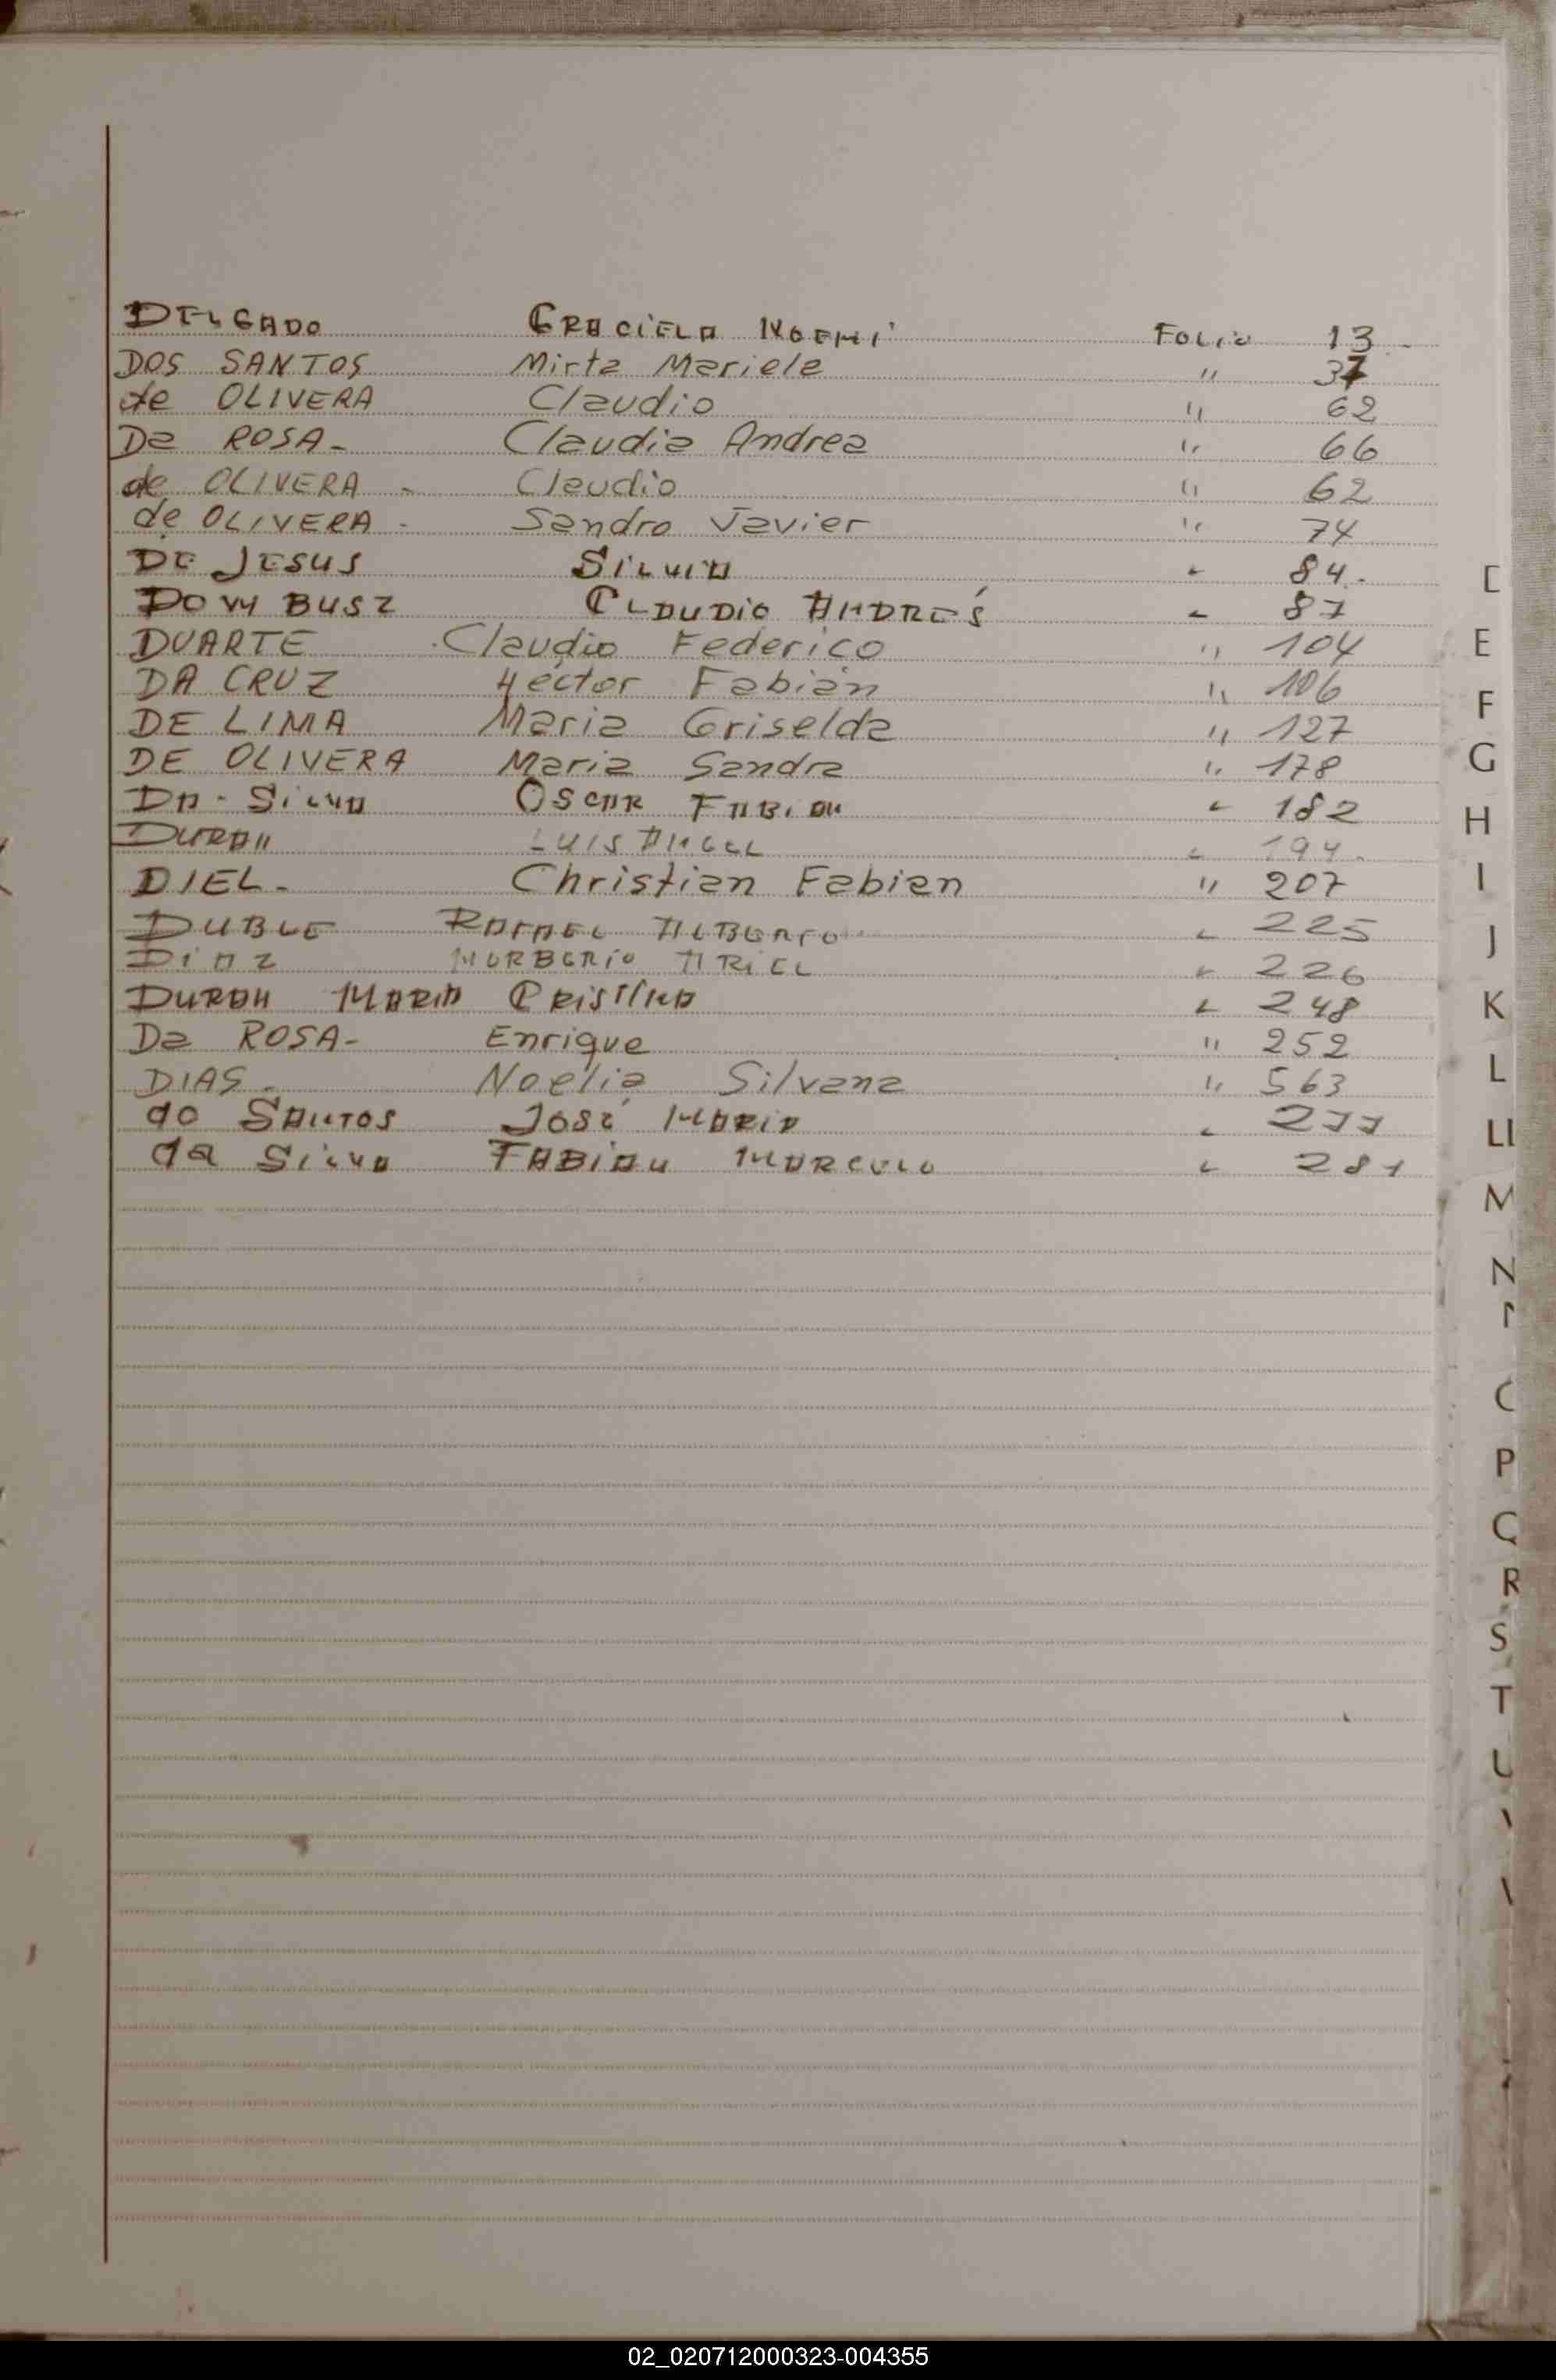 DELGADO GRACIELA NOEMÍ FOLIO 13
DOS SANTOS Mirta Mariele " 37
de OLIVERA Claudio " 62
Da ROSA- Claudia Andrea " 66
de OLIVERA - Claudio " 62
de OLIVERA - Sandro Javier " 74
DE JESUS SILVIA " 84.
DOM BUSZ CLAUDIO ANDRÉS " 87
DUARTE Claudio Federico " 104
DA CRUZ Héctor Fabián " 106
DE LIMA Maria Griselda " 127
DE OLIVERA Maria Sandra " 178
DA - SILVA OSCAR FABIAN " 182
DURAN LUIS ANGEL " 194.
DIEL- Christian Fabian " 207
DUBLE RAFAEL ALBERTO " 225
DIAZ NORBERTO ARIEL " 226
DURAN MARIA CRISTINA " 248
Da ROSA- Enrique " 252
DIAS- Noelia Silvana " 563
do SANTOS JOSÉ MARIA " 277
da SILVA FABIAN MARCELO " 281
E
F
G
H
I
J
K
L
LL
M
N
P
R
S
T
U
02_020712000323-004355